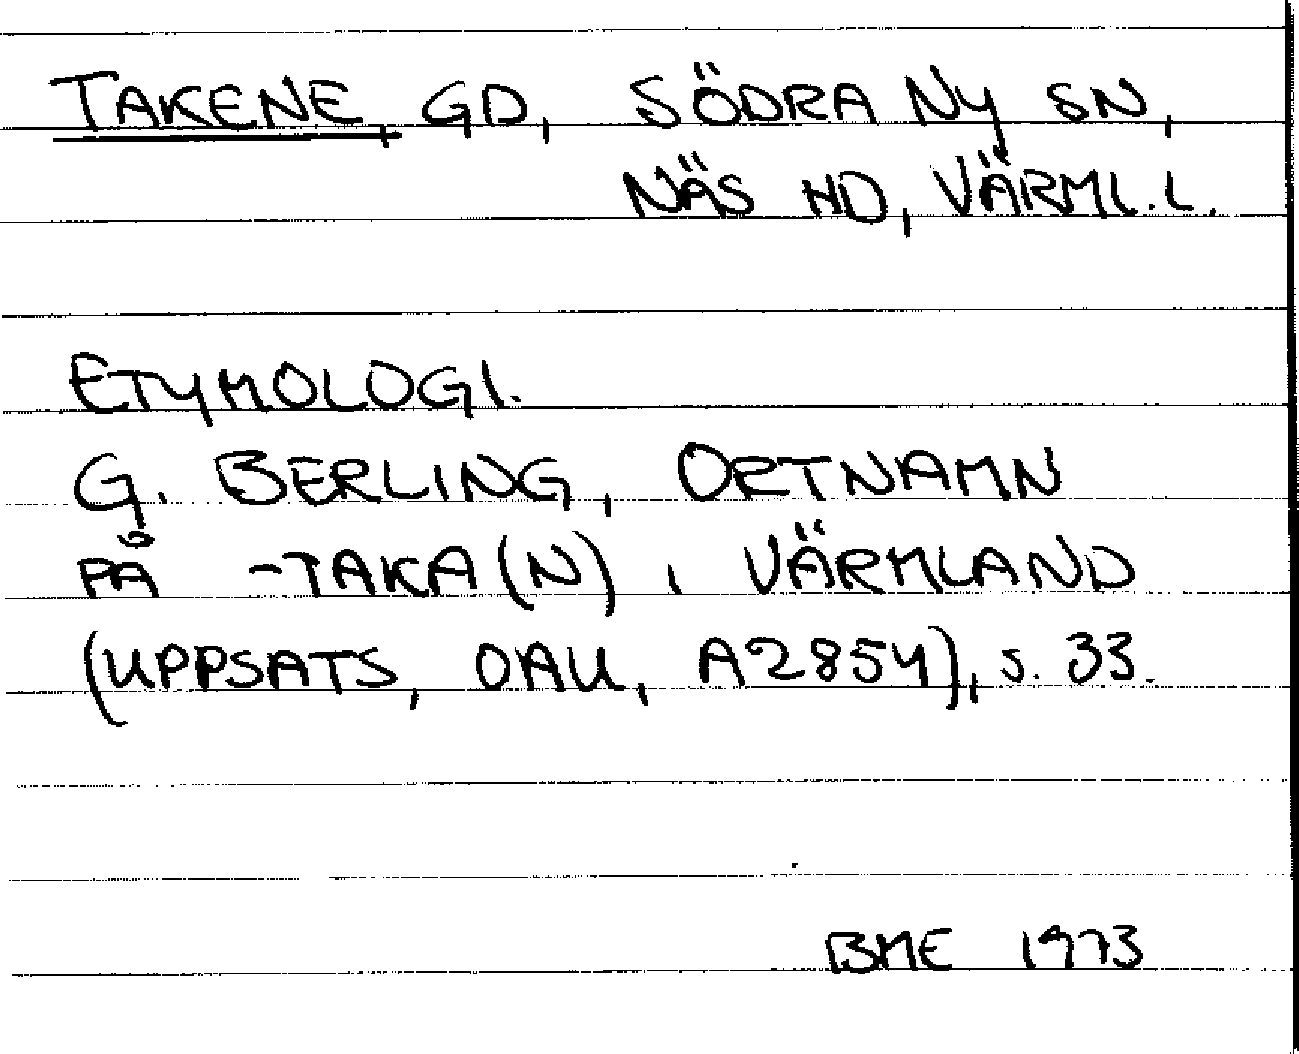 TAKENE, GD, SÖDRA NY SN,
NÄS HD, VÄRML.L.
ETYMOLOGI.
G. BERLING, ORTNAMN
PÅ -TAKA(N) I VÄRMLAND
(UPPSATS, OAU, A2854), S. 33.
BME 1973